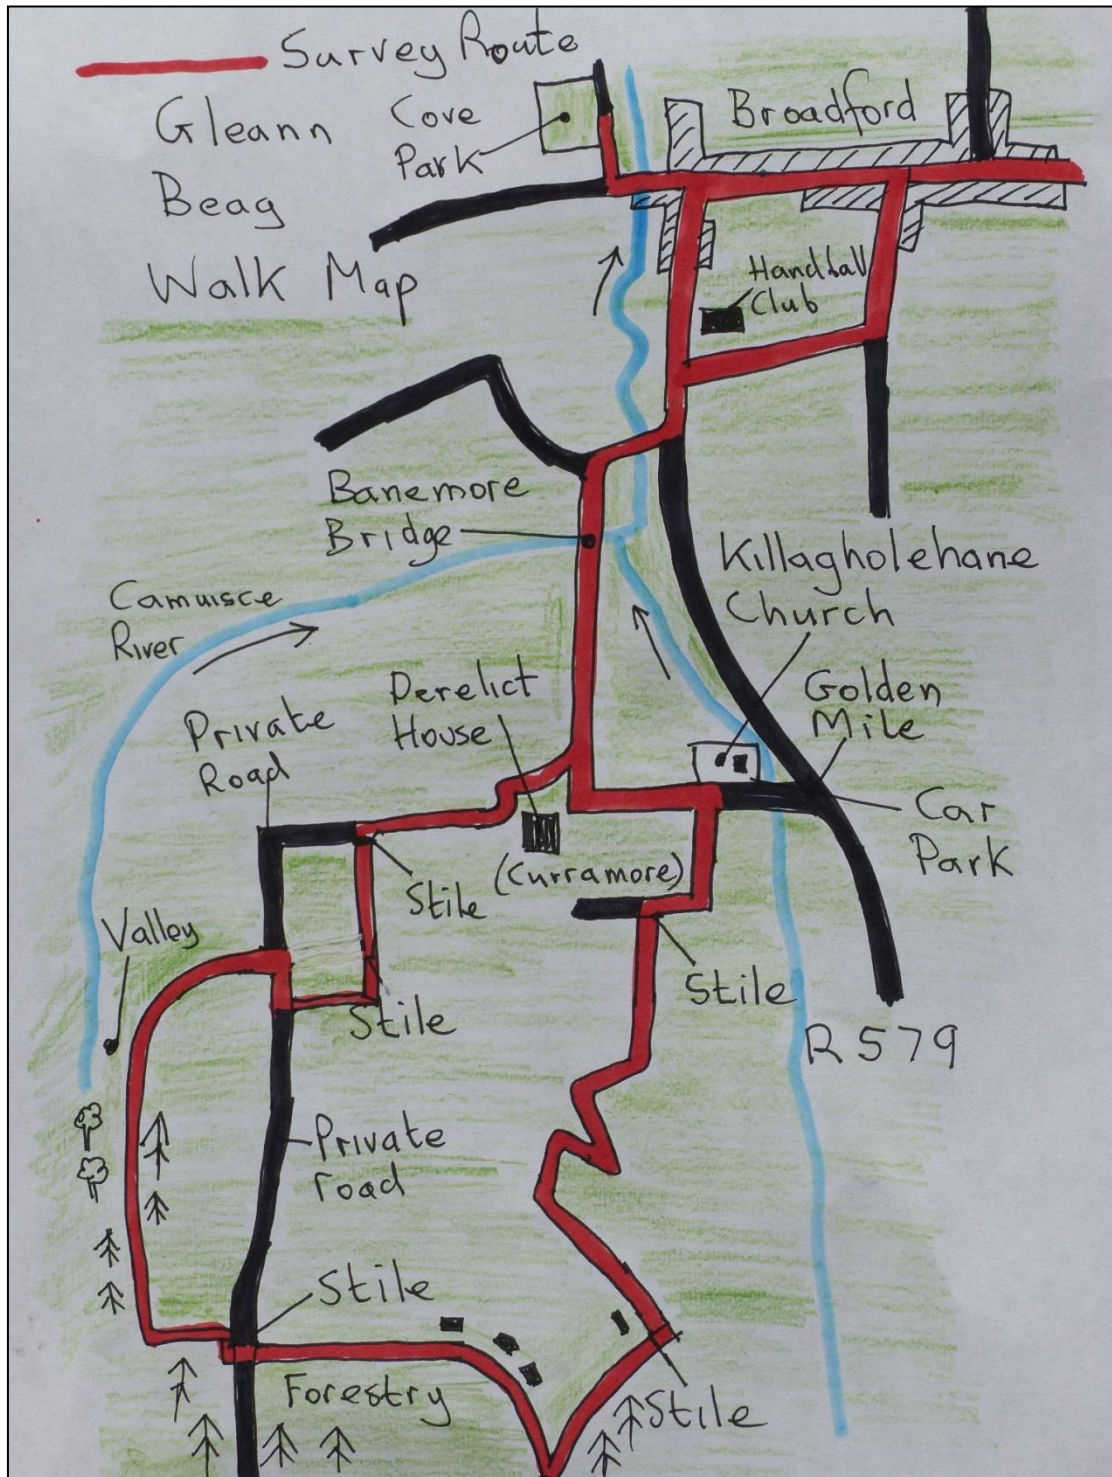 Survey Route
Gleann
Beag
Walk Map
Cove
Park
Broadford
Handball
Club
Banemore
Bridge
Killagholehane
Church
Camuisce
River
Derelict
House
Golden
Mile
Private
Road
Car
Park
(Curramore)
Stile
Valley
Stile
Stile
R579
Private
road
Stile
Forestry
Stile